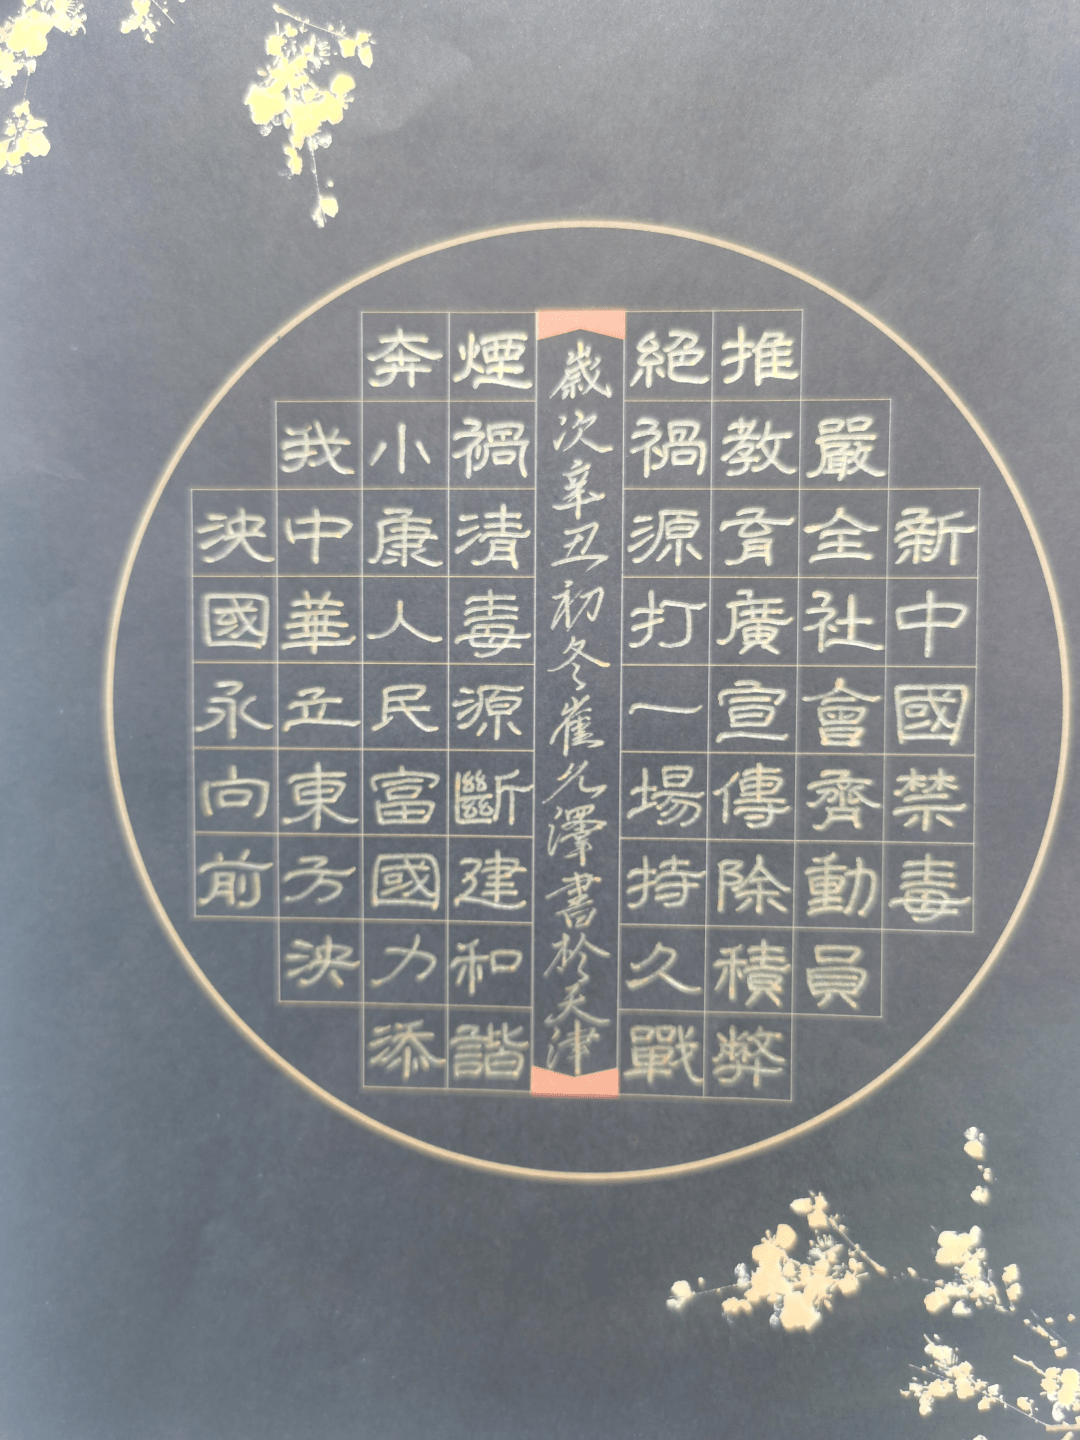 新中國禁毒
嚴全社會齊動員
推教育廣宣傳除積弊
絕禍源打一場持久戰
歲次辛丑初冬崔允澤書於天津
煙禍清毒源斷建和諧
奔小康人民富國力添
我中華立東方泱
泱國永向前